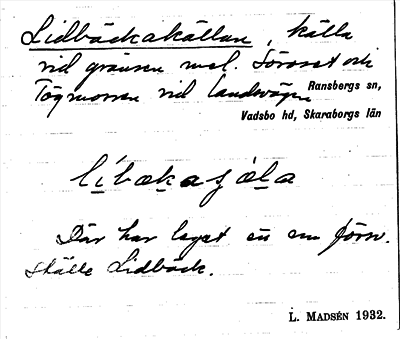 Lidbäckakällan, källa
vid gränsen mel. Söråset och
Tågmossen vid landsvägen Ransbergs sn,
Vadsbo hd, Skaraborgs län
Där har legat en förn.
ställe Lidbäck.
L. MADSÉN 1932.